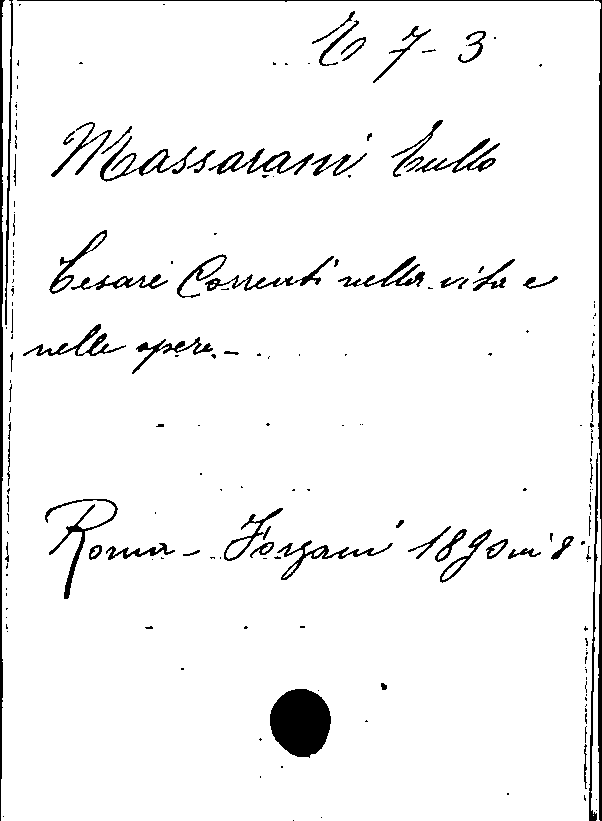 E 7-3
Massarani Tullo
Cesare Correnti nella vita e
nelle opere.-
Roma - Forzani 1890 in 8°